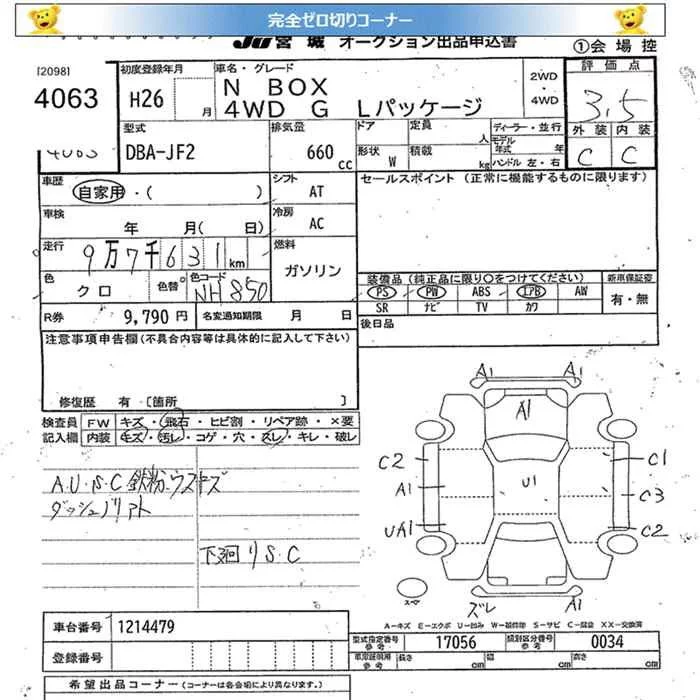 完全ゼロ切りコーナー
JU 宮城 オークション出品申込書
①会場控
[2098]
4063
4063
初度登録年月
H26 月
車名・グレード
N BOX
4WD G Lパッケージ
2WD
・
4WD
評価点
3.5
外装 内装
C C
型式
DBA-JF2
排気量
660 cc
ドア
定員
人
形状 W
積載
kg
ディーラー・並行
モデル年式 年
ハンドル 左・右
車歴
自家用・( )
シフト
AT
セールスポイント (正常に機能するものに限ります)
車検
年 月( 日)
冷房
AC
走行
9万7千631km
燃料
ガソリン
色
クロ
色替
色コード
NH850
装備品 (純正品に限り○をつけてください)
PS PW ABS エアB AW
SR ナビ TV カワ
新車保証書
有・無
R券 9,790 円
名変通知期限 月 日
後日品
注意事項申告欄(不具合内容等は具体的に記入して下さい)
修復歴 有 [箇所 ]
検査員
記入欄
FW キズ・飛石・ヒビ割・リペア跡・×要
内装 キズ・汚レ・コゲ・穴・ズレ・キレ・破レ
A.U.S.C 鉄粉.ウスキズ
ダッシュボリアト
下廻り S.C
A1 A1
A1
C2 C1
A1 U1 C3
UA1 C2
スペア
ズレ A1
A-キズ E-エクボ U-凹み W-補修跡 S-サビ C-腐食 XX-交換済
車台番号 1214479
登録番号
型式指定番号 参考 17056
類別区分番号 参考 0034
車庫証明用 参考 長さ cm 幅 cm 高さ cm
希望出品コーナー (コーナーは各会場により異なります。)